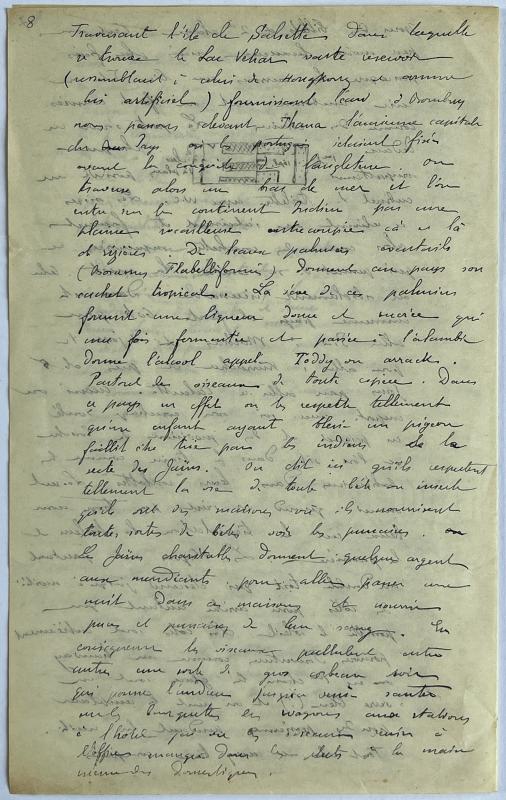 8
Traversant l'île de Salsette dans laquelle
se trouve le Lac Vehar vaste reservoir
(ressemblant à celui de Hongkong comme
lui artificiel) fournissant l'eau à Bombay
nous passons devant Thana l'ancienne capitale
du Pays où les portugais étaient fixés
avant la conquête de l'angleterre on
traverse alors un bras de mer et l'on
entre sur le continent Indien par une
plaine entrecoupée çà et là
de rizières De beaux palmiers éventails
(Borassus Flabelliformis) donnent au pays son
cachet tropical. La sève de ces palmiers
fournit une liqueur douce et sucrée qui
une fois fermentée et passée à l'alambic
donne l'alcool appelé Toddy ou arrack.
Partout des oiseaux de toute espèce. Dans
ce pays en effet on les respecte tellement
qu'un enfant ayant blessé un pigeon
faillit être tué par les indiens de la
secte des Jaïns. On dit ici qu'ils respectent
tellement la vie de toute bête ou insecte
qu'ils ont des maisons où ils nourrissent
toutes sortes de bêtes voir les punaises.
Les Jaïns charitables donnent quelque argent
aux mendiants pour aller passer une
nuit dans ces maisons et nourrir
puces et punaises de leur sang. En
conséquence les oiseaux pullulent entre
autres une sorte de gros corbeau noir
qui pousse l'audace jusqu'à venir sauter
sur les banquettes des wagons aux stations
à l'hôtel
manger dans les plats à la main
même des domestiques.